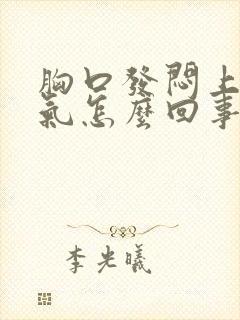 胸口發悶上
氣怎麼回事
李光曦